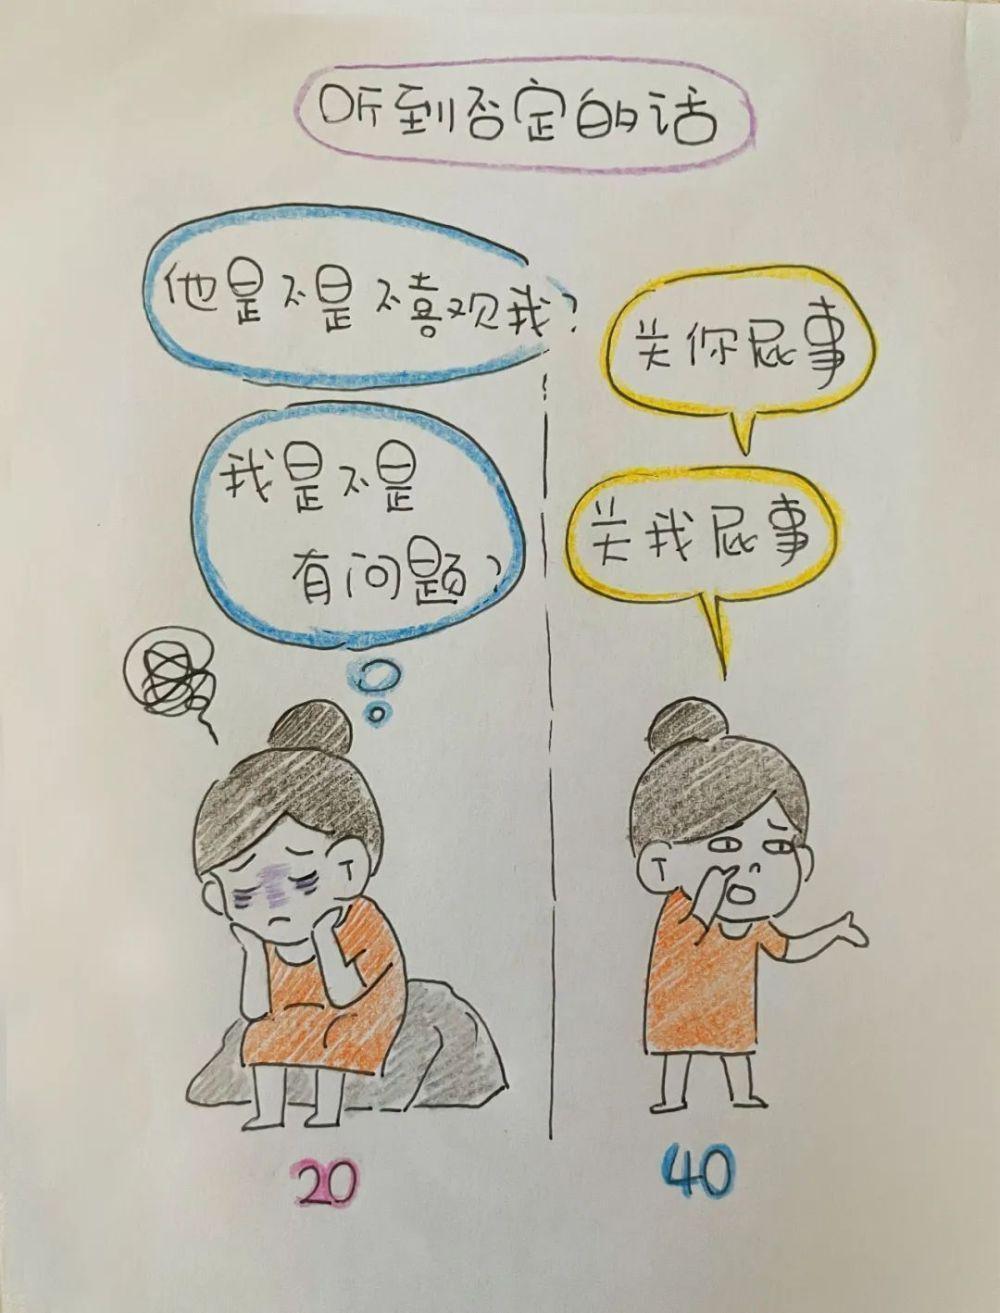 听到否定的话
他是不是不喜欢我？
我是不是
有问题？
关你屁事
关我屁事
20
40